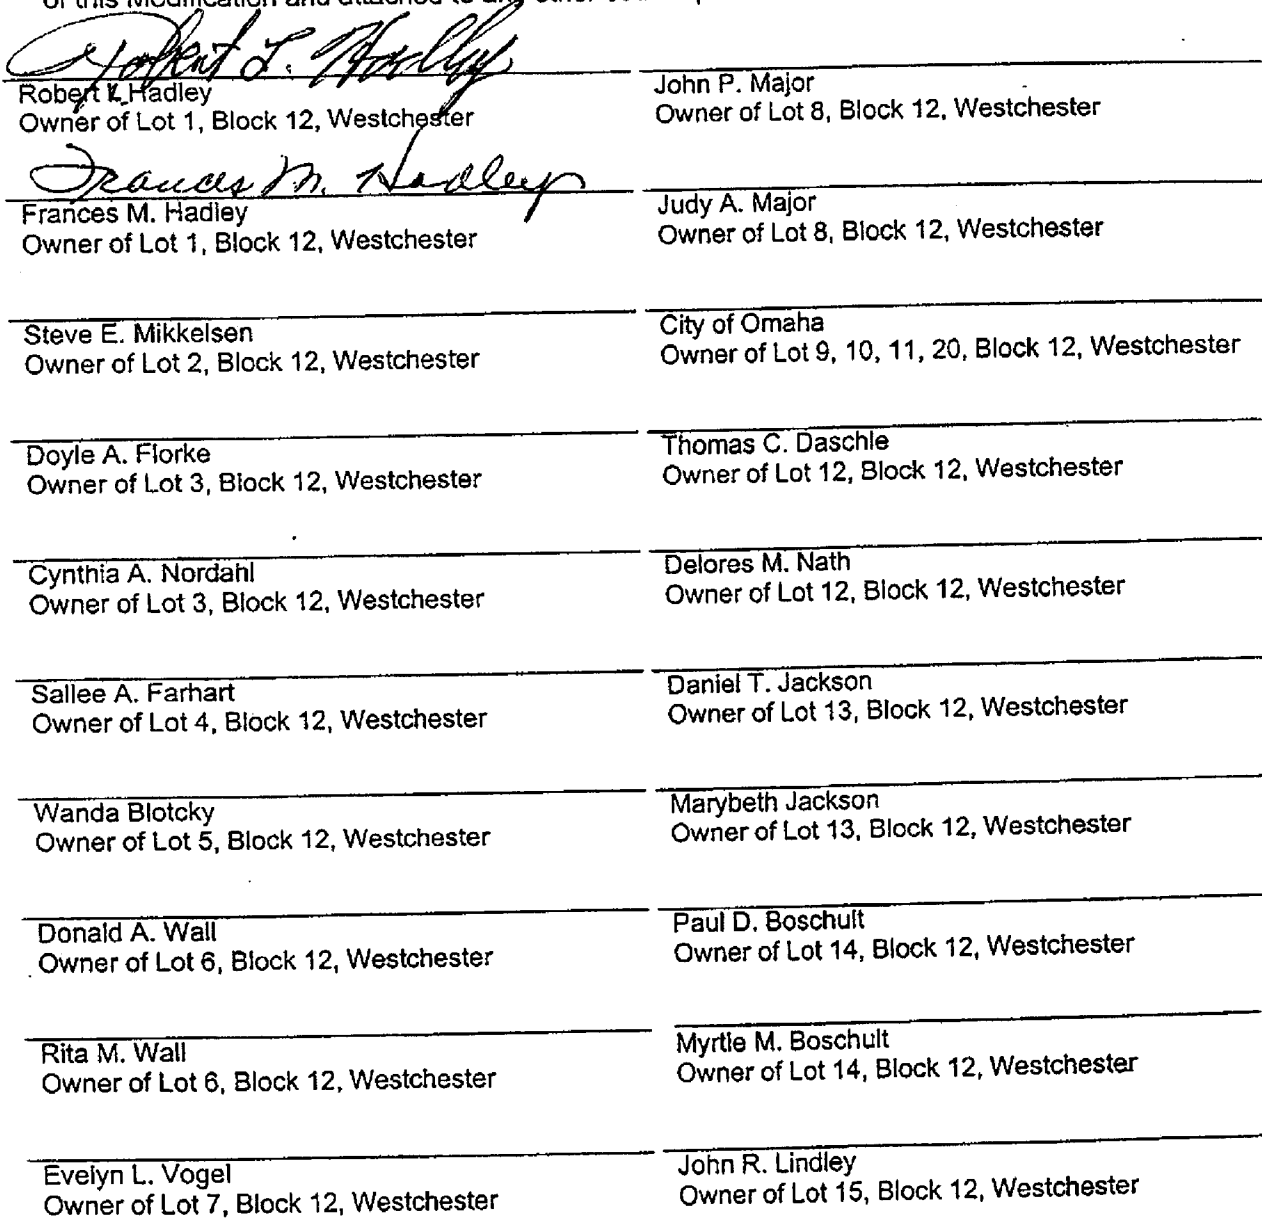 of this Modification and attached to any other
Robert L. Hadley
Robert L. Hadley
Owner of Lot 1, Block 12, Westchester
Frances M. Hadley
Frances M. Hadley
Owner of Lot 1, Block 12, Westchester
Steve E. Mikkelsen
Owner of Lot 2, Block 12, Westchester
Doyle A. Florke
Owner of Lot 3, Block 12, Westchester
Cynthia A. Nordahl
Owner of Lot 3, Block 12, Westchester
Sallee A. Farhart
Owner of Lot 4, Block 12, Westchester
Wanda Blotcky
Owner of Lot 5, Block 12, Westchester
Donald A. Wall
Owner of Lot 6, Block 12, Westchester
Rita M. Wall
Owner of Lot 6, Block 12, Westchester
Evelyn L. Vogel
Owner of Lot 7, Block 12, Westchester
John P. Major
Owner of Lot 8, Block 12, Westchester
Judy A. Major
Owner of Lot 8, Block 12, Westchester
City of Omaha
Owner of Lot 9, 10, 11, 20, Block 12, Westchester
Thomas C. Daschle
Owner of Lot 12, Block 12, Westchester
Delores M. Nath
Owner of Lot 12, Block 12, Westchester
Daniel T. Jackson
Owner of Lot 13, Block 12, Westchester
Marybeth Jackson
Owner of Lot 13, Block 12, Westchester
Paul D. Boschult
Owner of Lot 14, Block 12, Westchester
Myrtle M. Boschult
Owner of Lot 14, Block 12, Westchester
John R. Lindley
Owner of Lot 15, Block 12, Westchester